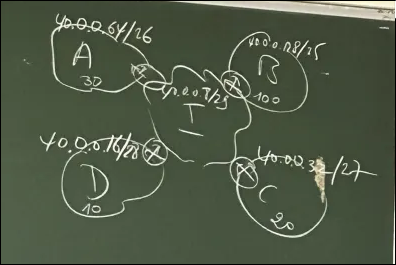 40.0.0.64/26
A
30
40.0.0.128/25
B
100
40.0.0.8/29
T
40.0.0.16/28
D
10
40.0.0.32/27
C
20